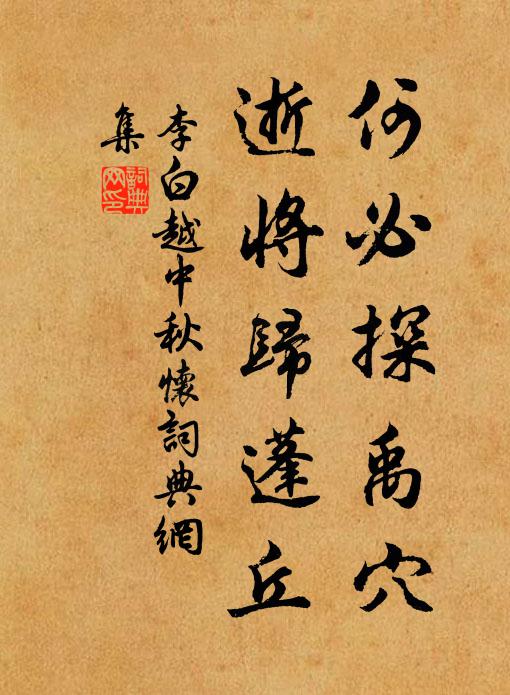 何必探禹穴
逝將歸蓬丘
李白越中秋懷詞典網
集
詞典
网印